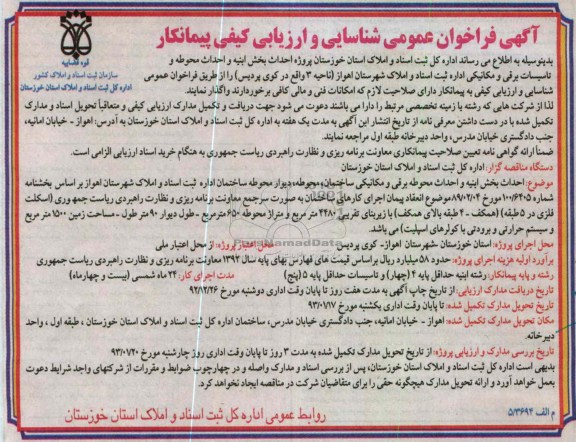 آگهی فراخوان عمومی شناسایی و ارزیابی کیفی پیمانکار
قوه قضاییه
سازمان ثبت اسناد و املاک کشور
اداره کل ثبت اسناد و املاک استان خوزستان
بدینوسیله به اطلاع می رساند اداره کل ثبت اسناد و املاک استان خوزستان پروژه احداث بخش ابنیه و احداث محوطه و
تاسیسات برقی و مکانیکی اداره ثبت اسناد و املاک شهرستان اهواز (ناحیه ۳ واقع در کوی پردیس) را از طریق فراخوان عمومی
شناسایی و ارزیابی کیفی به پیمانکار دارای صلاحیت لازم که امکانات فنی و مالی کافی برخوردارند واگذار نمایند.
لذا از شرکت هایی که رشته یا زمینه تخصصی مرتبط را دارا می باشند دعوت می شود جهت دریافت و تکمیل مدارک ارزیابی کیفی و متعاقباً تحویل اسناد و مدارک
تکمیل شده با در دست داشتن معرفی نامه از تاریخ انتشار این آگهی به مدت یک هفته به اداره کل ثبت اسناد و املاک استان خوزستان به آدرس: اهواز - خیابان امانیه،
جنب دادگستری خیابان مدرس، واحد دبیرخانه طبقه اول مراجعه نمایند.
ضمناً ارائه گواهی نامه تعیین صلاحیت پیمانکاری معاونت برنامه ریزی و نظارت راهبردی ریاست جمهوری به هنگام خرید اسناد ارزیابی الزامی است.
دستگاه مناقصه گزار: اداره کل ثبت اسناد و املاک استان خوزستان
موضوع: احداث بخش ابنیه و احداث محوطه برقی و مکانیکی ساختمان، محوطه، دیوار محوطه ساختمان اداره ثبت اسناد و املاک شهرستان اهواز بر اساس بخشنامه
شماره ۱۰۰/۶۴۰۵ مورخ ۸۹/۰۲/۰۴ موضوع انعقاد پیمان اجرای کارهای ساختمان به صورت سرجمع معاونت برنامه ریزی و نظارت راهبردی ریاست جمهوری (اسکلت
فلزی در ۵ طبقه (همکف - ۴ طبقه بالای همکف) با زیربنای تقریبی ۴۴۸۰ متر مربع و متراژ محوطه ۶۵۰ مترمربع - طول دیوار ۹۰ متر طول - مساحت زمین ۱۵۰۰ متر مربع
و سیستم حرارتی و برودتی با کولرهای اسپلیت) می باشد.
محل اجرای پروژه: استان خوزستان شهرستان اهواز- کوی پردیس محل اعتبار پروژه: از محل اعتبار ملی
برآورد اولیه هزینه اجرای پروژه: حدود ۵۸ میلیارد ریال براساس قیمت های فهارس بهای پایه سال ۱۳۹۲ معاونت برنامه ریزی و نظارت راهبردی ریاست جمهوری
رشته و پایه پیمانکار: رشته ابنیه حداقل پایه ۴ (چهار) و تاسیسات حداقل پایه ۵ (پنج) مدت اجرای کار: ۲۴ ماه شمسی (بیست و چهارماه)
تاریخ دریافت مدارک ارزیابی: از تاریخ چاپ آگهی به مدت هفت روز تا پایان وقت اداری دوشنبه مورخ ۹۲/۱۲/۲۶
تاریخ تحویل مدارک تکمیل شده: تا پایان وقت اداری یکشنبه مورخ ۹۳/۰۱/۱۷
مکان تحویل مدارک تکمیل شده: اهواز - خیابان امانیه، جنب دادگستری خیابان مدرس، ساختمان اداره کل ثبت اسناد و املاک استان خوزستان ، طبقه اول ، واحد
دبیرخانه.
تاریخ بررسی مدارک و ارزیابی پروژه: از تاریخ تحویل مدارک تکمیل شده به مدت ۳ روز تا پایان وقت اداری روز چارشنبه مورخ ۹۳/۰۱/۲۰
بدیهی است اداره کل ثبت اسناد و املاک استان خوزستان، پس از بررسی اسناد و مدارک واصله و در چهارچوب ضوابط و مقررات از شرکتهای واجد شرایط دعوت
بعمل خواهد آورد و ارائه تحویل مدارک هیچگونه حقی را برای متقاضیان شرکت در مناقصه ایجاد نخواهد کرد.
م الف ۵/۳۶۹۴
روابط عمومی اداره کل ثبت اسناد و املاک استان خوزستان